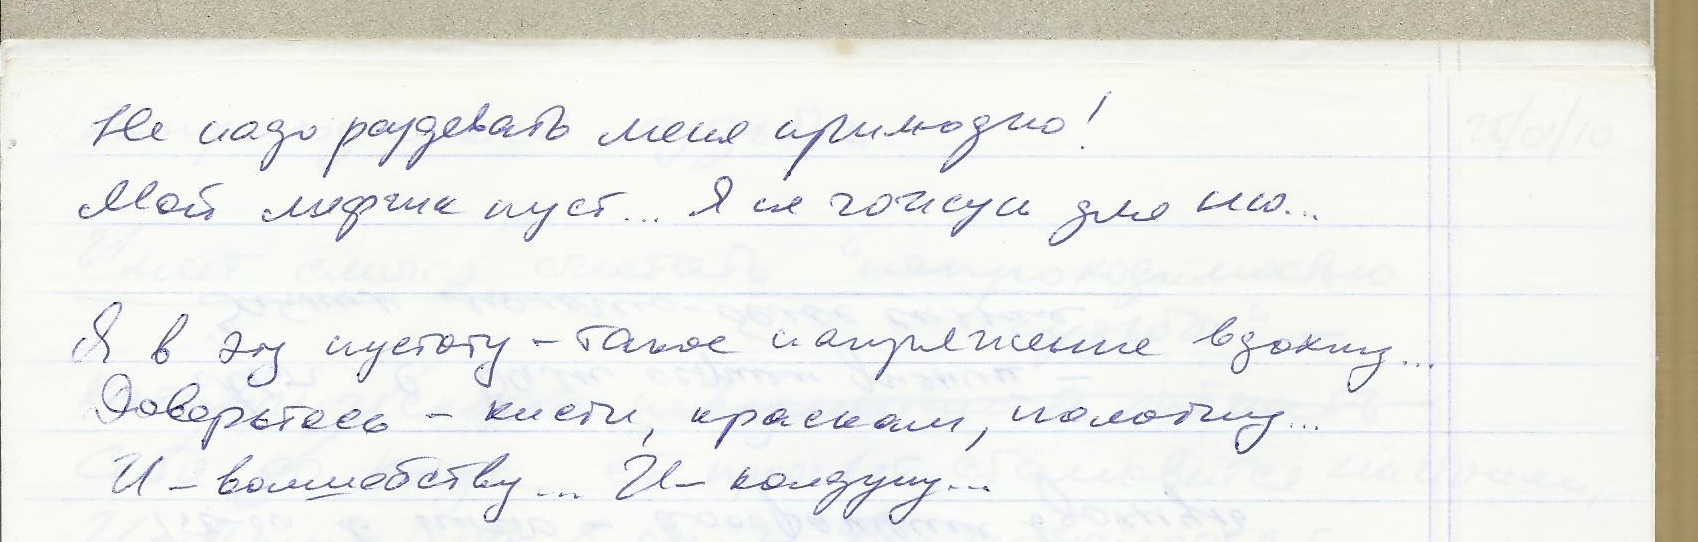 Не надо раздевать меня прилюдно!
Мой лифчик пуст... Я не гожусь для ню...
Я в эту пустоту – такое напряжение вдохну...
Доверьтесь – кисти, краскам, полотну...
И – волшебству... И – колдуну...